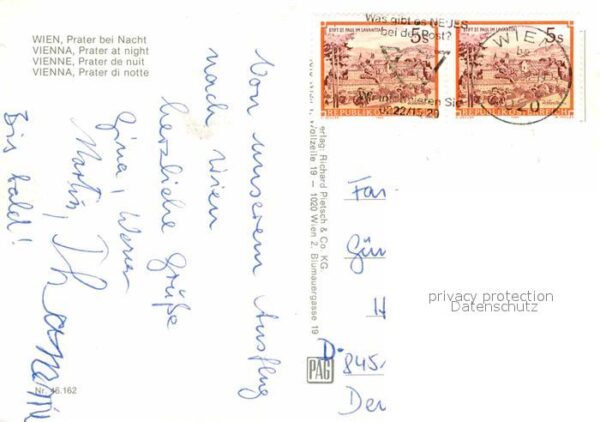 WIEN, Prater bei Nacht
VIENNA, Prater at night
VIENNE, Prater de nuit
VIENNA, Prater di notte
Von unserem Ausflug
nach Wien
herzliche Grüße
Gina, Werner
Martin, Thomas
Bis bald!
Nr. 46.162
Verlag: Richard Pietsch & Co. KG
Wollzeile 19 – 1020 Wien 2, Blumauergasse 19
PAG
Was gibt es NEUES
bei der Post?
Wir informieren Sie
STIFT ST. PAUL IM LAVANTTAL
5s
REPUBLIK
STIFT ST. PAUL IM LAVANTTAL
5s
REPUBLIK
WIEN
1020
Fa
Gün
H
D-845
Der
privacy protection
Datenschutz